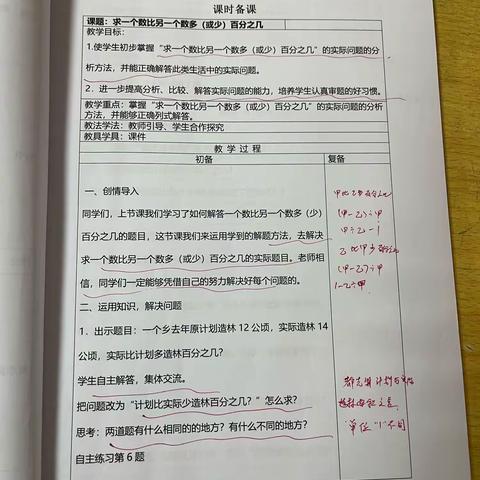 课时备课
课题：求一个数比另一个数多（或少）百分之几
教学目标：
1.使学生初步掌握“求一个数比另一个数多（或少）百分之几”的实际问题的分
析方法，并能正确解答此类生活中的实际问题。
2．进一步提高分析、比较、解答实际问题的能力，培养学生认真审题的好习惯。
教学重点：掌握“求一个数比另一个数多（或少）百分之几”的实际问题的分析
方法，并能够正确列式解答。
教法学法：教师引导、学生合作探究
教具学具：课件
教 学 过 程
初备
复备
一、创情导入
同学们，上节课我们学习了如何解答一个数比另一个数多（少）
百分之几的题目，这节课我们来运用学到的解题方法，去解决
求一个数比另一个数多（或少）百分之几的实际题目。老师相
信，同学们一定能够凭借自己的努力解决好每个问题的。
二、运用知识，解决问题
1．出示题目：一个乡去年原计划造林 12 公顷，实际造林 14
公顷，实际比计划多造林百分之几？
学生自主解答，集体交流。
把问题改为“计划比实际少造林百分之几？”怎么求？
思考：两道题有什么相同的的地方？有什么不同的地方？
自主练习第 6 题
甲比乙多百分之几
(甲-乙)÷
甲÷乙-1
乙比甲少百分之几
(甲-乙)÷甲
1-乙÷甲
都先算计划与实际
造林面积之差
单位“1”不同